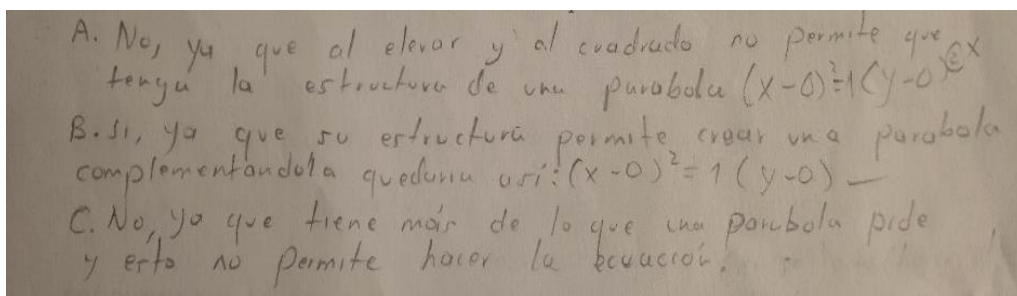 A. No, ya que al elevar y al cuadrado no permite que
tenga la estructura de una parabola (x-0)²=1(y-0)² x
B. Si, ya que su estructura permite crear una parabola
complementandola quedaria asi: (x-0)²=1(y-0) —
C. No, ya que tiene más de lo que una parabola pide
y esto no permite hacer la ecuación.